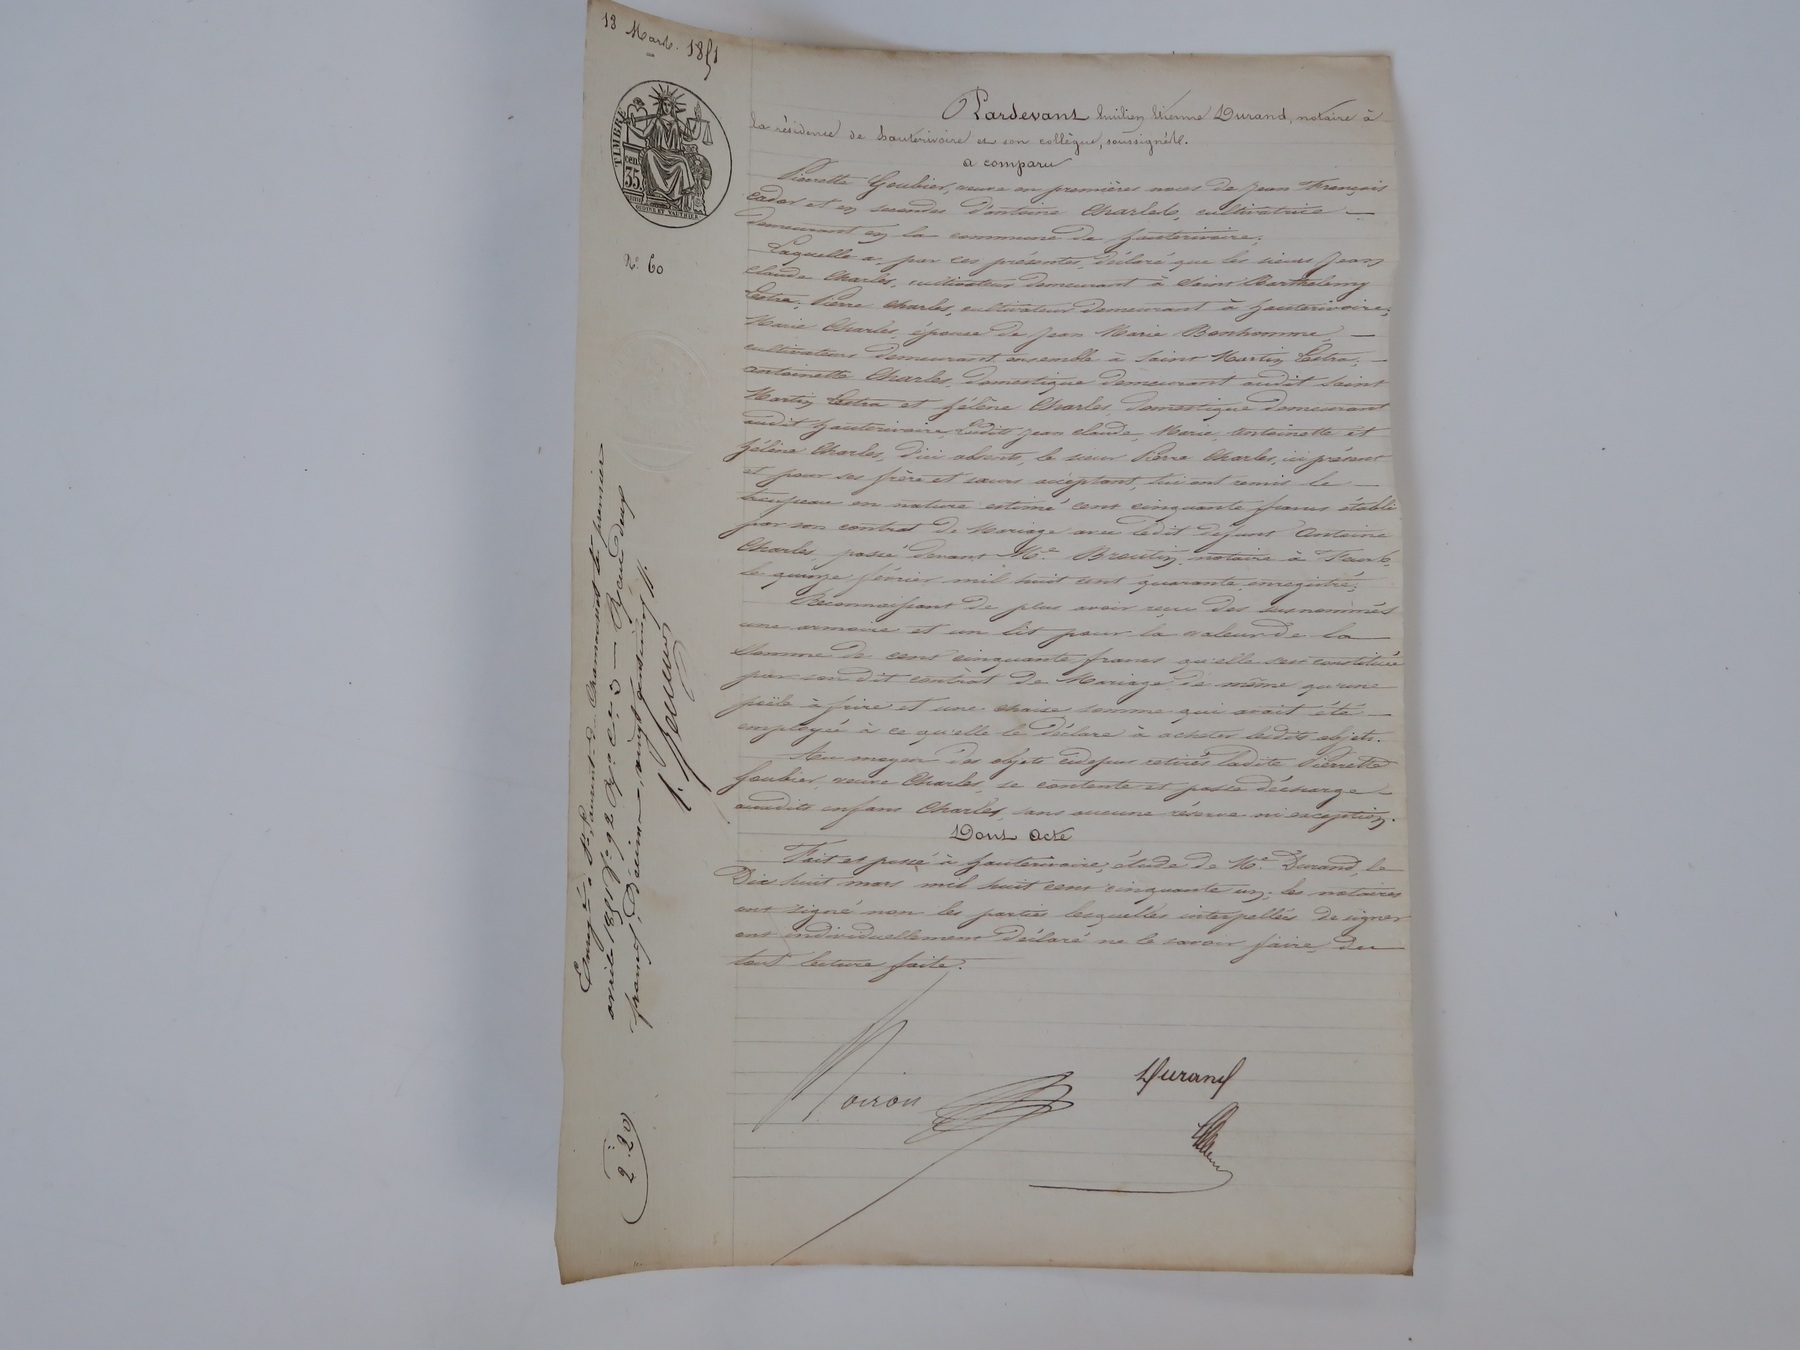 18 Mars. 1851
TIMBRE
cent
35
N.° 60
Pardevant Emilien Etienne Durand, notaire à
la résidence de hauterivoire et son collègue, soussignés.
a comparu
Pierrette Goubier, veuve en premières noces de Jean François
cadar et en secondes d'antoine Charles, cultivatrice —
demeurant en la commune de hauterivoire,
Laquelle a, par ces présentes, déclaré que les sieurs Jean
claude Charles, cultivateur demeurant à Saint Barthelemy
Lestra, Pierre Charles, cultivateur demeurant à hauterivoire,
Marie Charles, épouse de Jean Marie Bonhomme, —
cultivateurs demeurant ensemble à Saint Martin Lestra, —
antoinette Charles, domestique demeurant audit Saint
Martin Lestra et hélène Charles, domestique demeurant
audit hauterivoire, Lesdits Jean claude, Marie, antoinette et
hélène Charles, d'ici absents, le sieur Pierre Charles, ici présent
et pour ses frère et sœurs acceptant, lui ont remis le —
trousseau en nature estimé cent cinquante francs établi
par son contrat de Mariage avec ledit défunt antoine
Charles, passé devant M.e notaire à Feurs,
le quinze février mil huit cent quarante, enregistré;
Reconnaissant de plus avoir reçu des susnommés
une armoire et un lit pour la valeur de la —
somme de cent cinquante francs qu'elle s'est constituée
par son dit contrat de Mariage, de même qu'une
poële à frire et une chaise, somme qui avait été —
employée à ce qu'elle le déclare à acheter lesdits objets.
Au moyen des objets cidessus retirés ladite Pierrette
Goubier, veuve Charles, se contente et passe décharge —
auxdits enfans Charles, sans aucune réserve ni exception.
Dont acte
Fait et passé à hauterivoire, étude de M.e Durand, le
Dix huit mars mil huit cent cinquante un; les notaires
ont signé non les parties lesquelles interpellées de signer
ont individuellement déclaré ne le savoir faire, du
tout lecture faite.
Noiron
Durand
Enreg.é à S.t Laurent de Chamousset le premier
avril 1851 f.° 92 R.° c. 3 — Reçu deux
francs, Décime vingt centimes
2.20